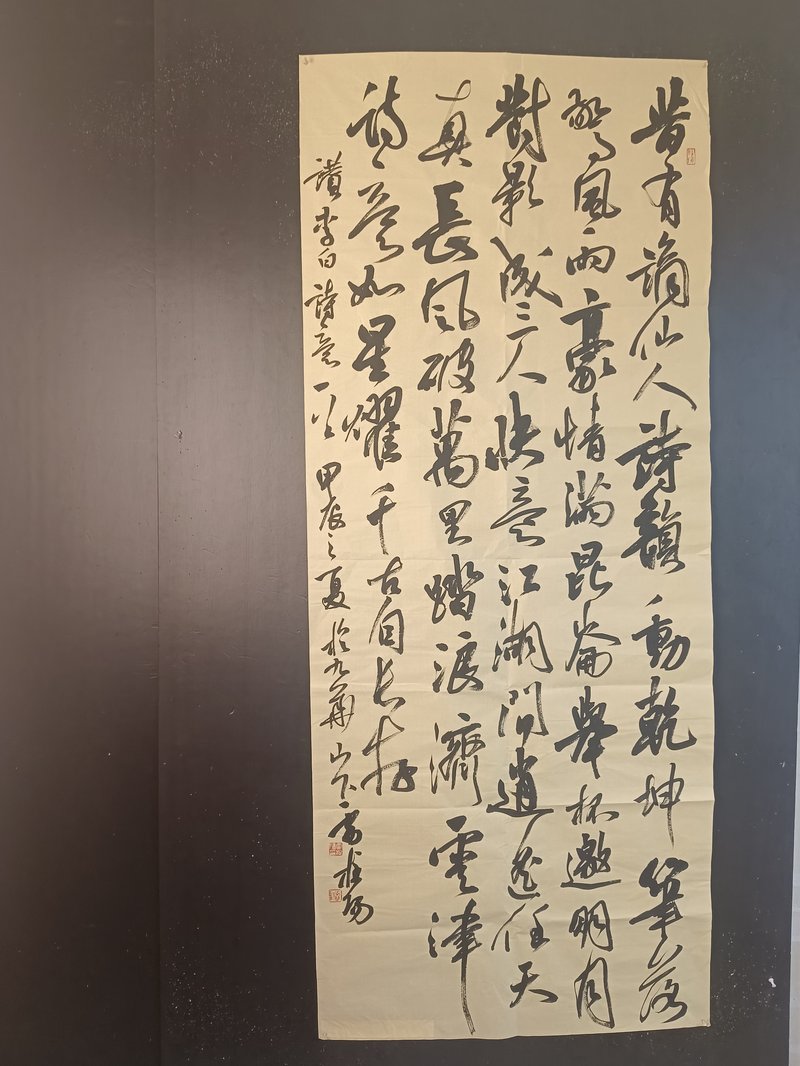 昔有謫仙人詩韻動乾坤筆落
驚風雨豪情滿昆崙舉杯邀明月
對影成三人快意江湖間逍遥任天
真長風破萬里踏浪濟雲津
詩意如星耀千古自長存
讃李白詩意一首甲辰之夏於九華山下